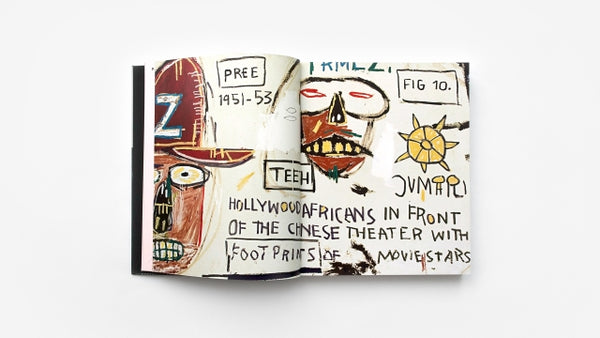 Z
PREE
1951-53
FIG 10.
TEEH
HOLLYWOOD AFRICANS IN FRONT
OF THE CHNESE THEATER WITH
FOOTPRINTS OF MOVIE STARS